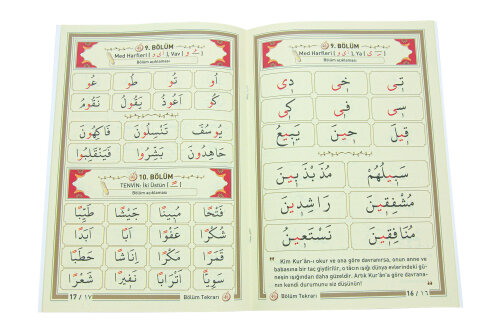 9. BÖLÜM
Med Harfleri ( ا و ى ), Ya ( ـِى )
Bölüm açıklaması
تِى خِى دِى
سِى فِى كِى
قِيلَ حِينَ يَبِيعُ
سَبِيلُهُمْ مُذَبْذَبِينَ
مُشْفِقِينَ رَاشِدِينَ
مُنَافِقِينَ نَسْتَعِينُ
Kim Kur'ân-ı okur ve ona göre davranırsa, onun anne ve
babasına bir taç giydirilir, o tâcın ışığı dünya evlerindeki gü-
neşin ışığından daha güzeldir. Artık Kur'ân'a göre davrana-
nın kendi durumunu siz düşünün!
Bölüm Tekrarı
16 / ١٦
9. BÖLÜM
Med Harfleri ( ا و ى ), Vav ( ـُو )
Bölüm açıklaması
اُو تُو طُو عُو
كُو اَعُوذُ يَقُولُ نَقُومُ
يُوسُفَ تَنْسِلُونَ فَاكِهُونَ
جَاهِدُونَ بَشِّرُوا فَيَنْقَلِبُوا
10. BÖLÜM
TENVİN: İki Üstün ( ـً )
Bölüm açıklaması
فَتْحًا مُبِينًا جَيْشًا طَيِّبًا
شُكْرًا عَفُوًّا آبًا اَبَدًا
قَمَرًا مَكْرًا اِنَاثًا حَطَبًا
سَوِيًّا اَتْرَابًا نَفِيرًا شَعْرًا
17 / ١٧
Bölüm Tekrarı